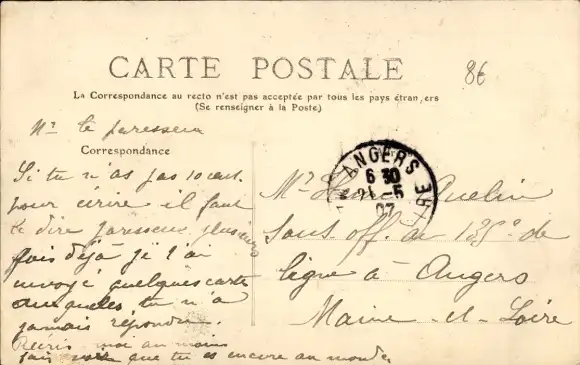 CARTE POSTALE
86
La Correspondance au recto n'est pas acceptée par tous les pays étran,ers
(Se renseigner à la Poste)
Mr le paresseux
Correspondance
ANGERS
6 30
21-5
07
Si tu n'as pas 10 cent.
pour écrire il faut
le dire paresseux plusieurs
fois déjà je t'ai
envoyé quelques carte
auxquelles tu n'a
jamais répondu.
Récris moi au moins
fais voir que tu es encore au monde
Mr Quelin
sous off. au 135e de
ligne à Angers
Maine-et-Loire